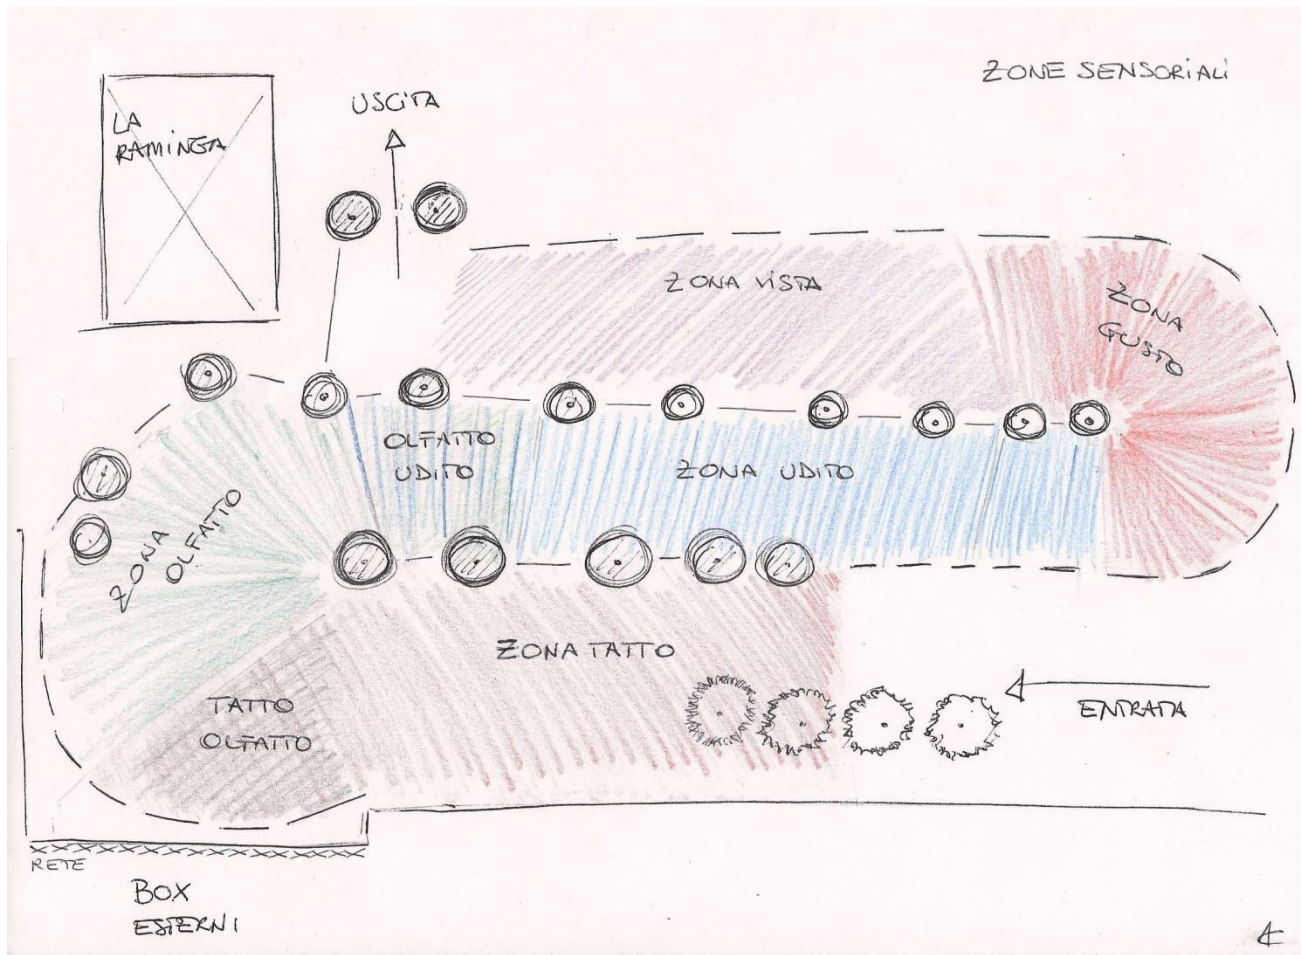 ZONE SENSORIALI
USCITA
LA
RAMINGA
ZONA VISTA
ZONA
GUSTO
OLFATTO
UDITO
ZONA UDITO
ZONA
OLFATTO
ZONA TATTO
TATTO
OLFATTO
ENTRATA
RETE
BOX
ESTERNI